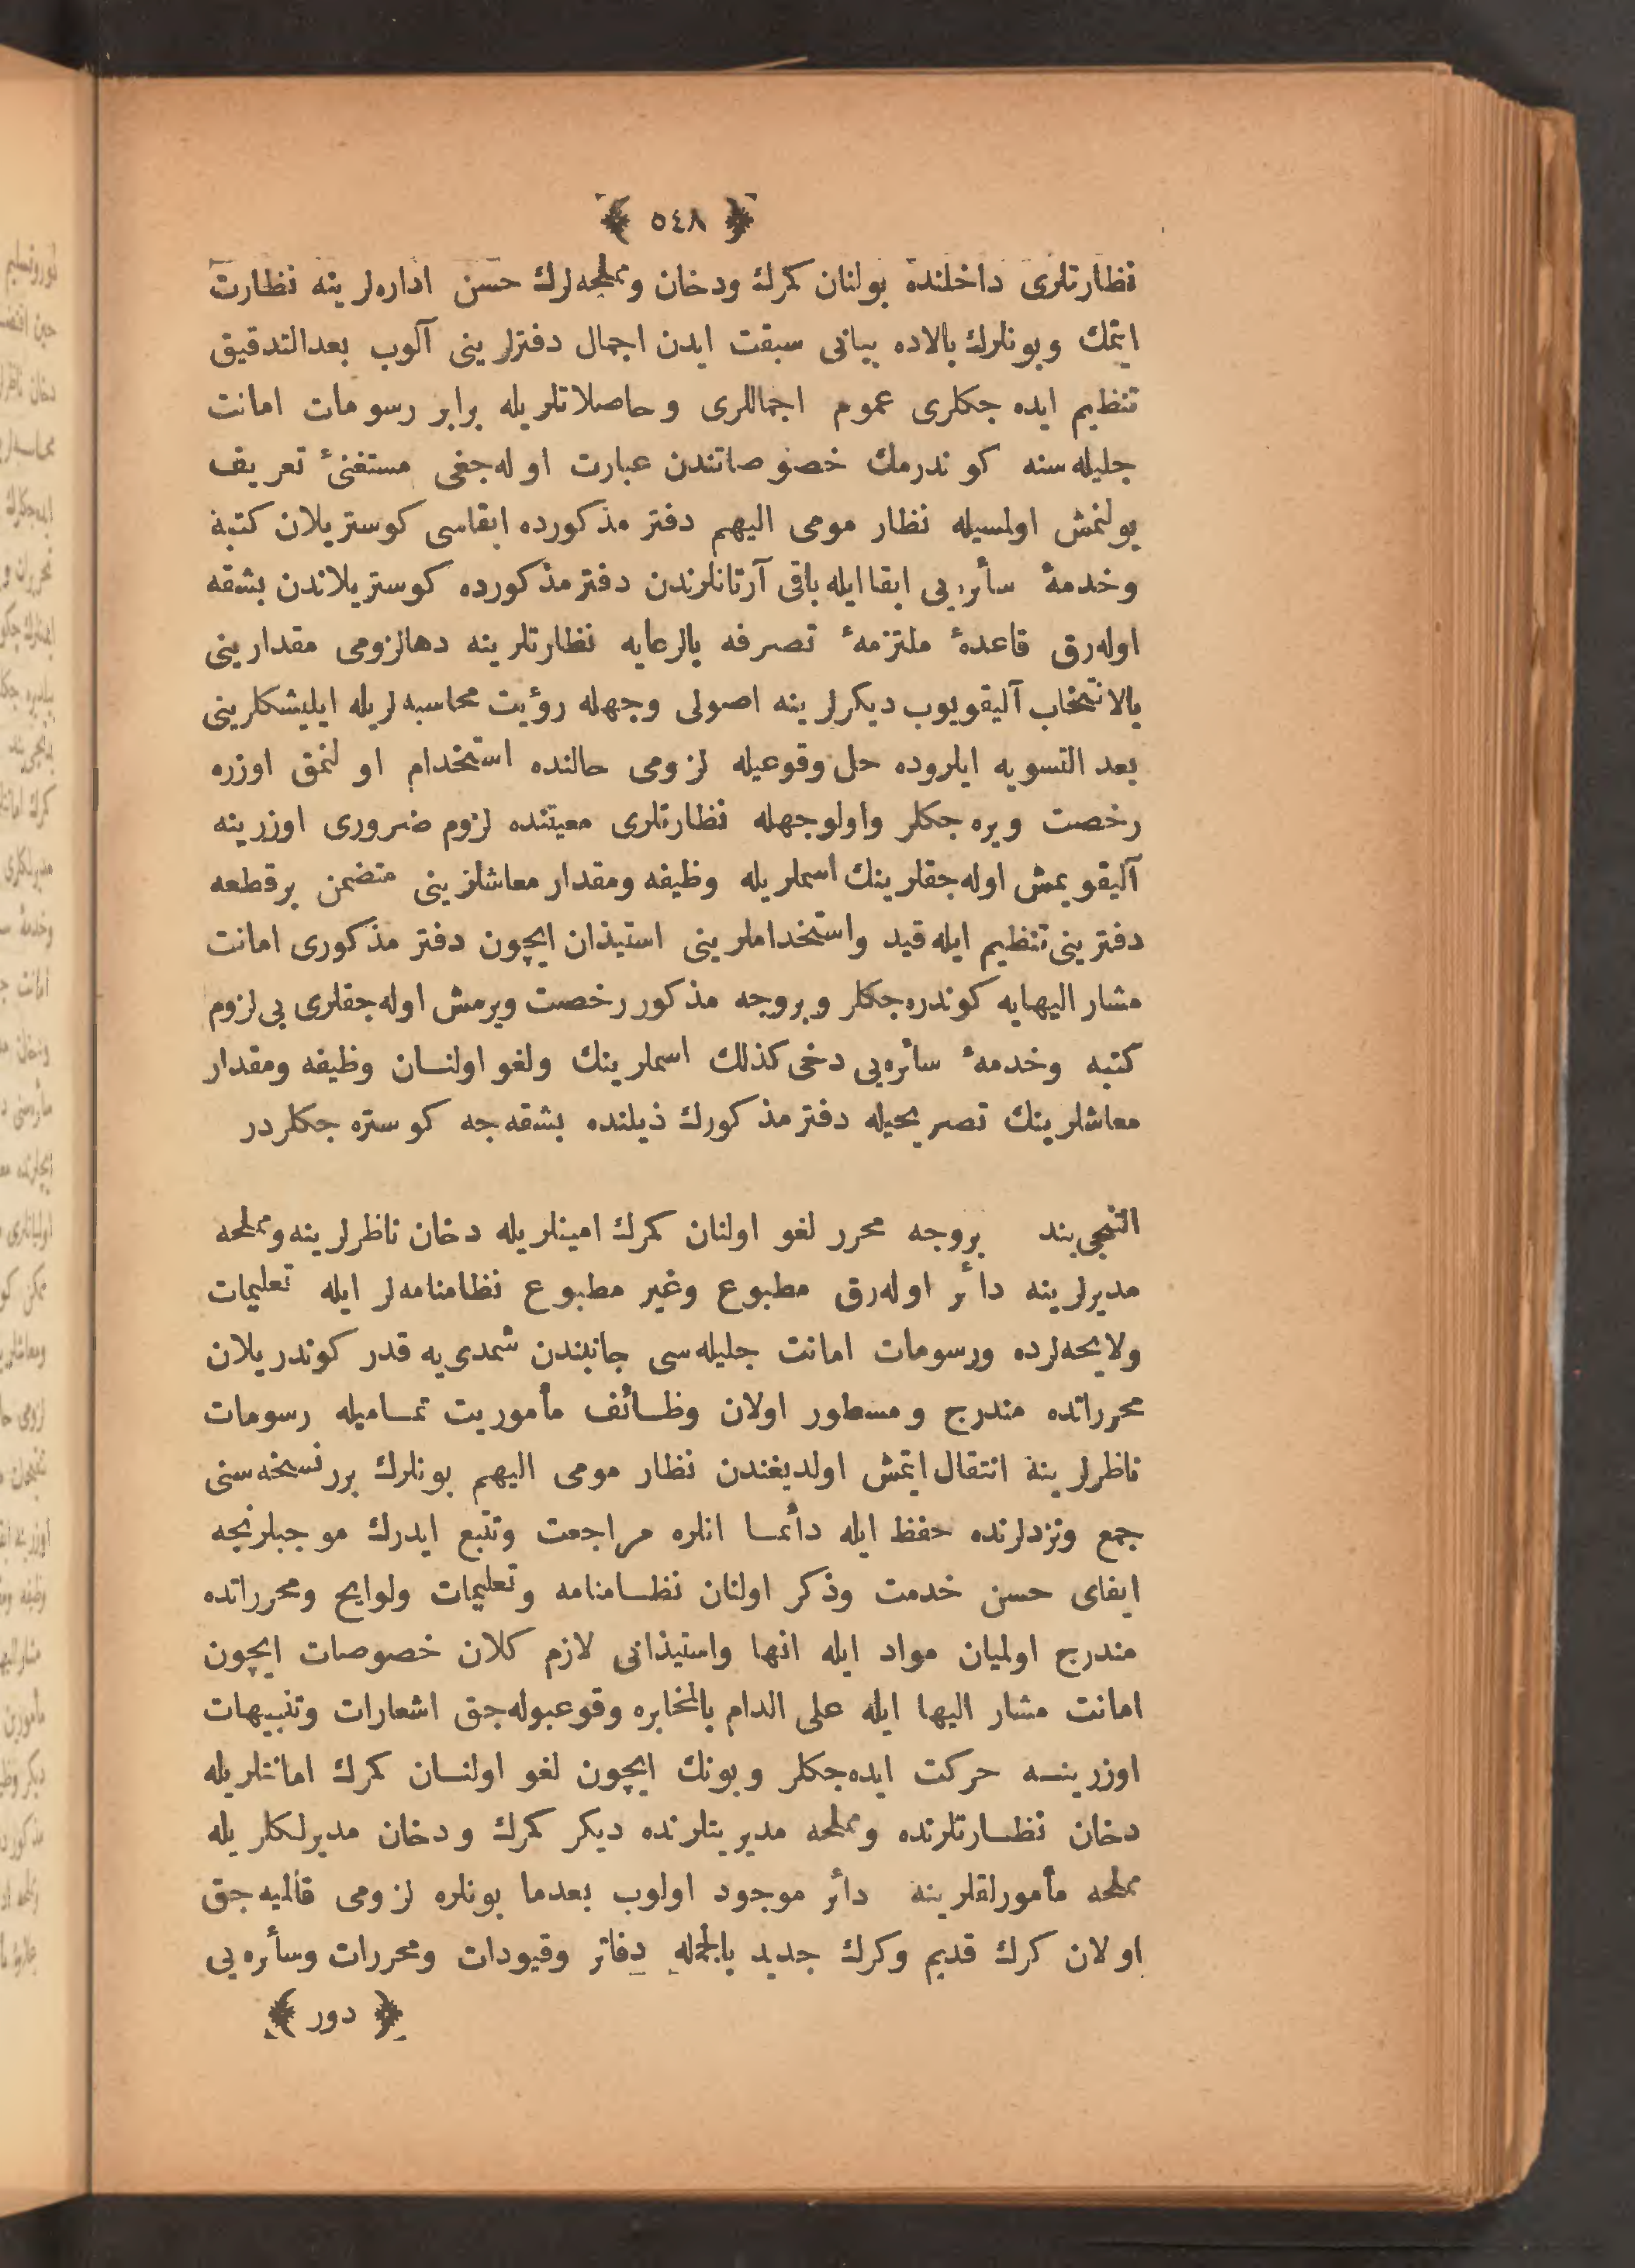 ﴿ ٥٤٨ ﴾
نظارتلری داخلنده بولنان كمرك ودخان ومملحه‌لرك حسن اداره‌لرینه نظارت
ایتمك وبونلرك بالاده بیانی سبقت ایدن اجمال دفترلرینی آلوب بعدالتدقیق
تنظیم ایده جكلری عموم اجماللری و حاصلاتلریله برابر رسومات امانت
جلیله‌سنه كوندرمك خصوصاتندن عبارت اوله‌جغی مستغنیٔ تعریف
بولنمش اولمسیله نظار مومی الیهم دفتر مذكورده ابقاسی كوستریلان كتبه
وخدمهٔ سأره‌یی ابقا ایله باقی آرتانلرندن دفتر مذكورده كوستریلاندن بشقه
اوله‌رق قاعدهٔ ملتزمهٔ تصرفه بالرعایه نظارتلرینه دهالزومی مقدارینی
بالانتخاب آلیقویوب دیكرلرینه اصولی وجهله رؤیت محاسبه‌لریله ایلیشكلرینی
بعد التسویه ایلروده حل وقوعیله لزومی حالنده استخدام اولنمق اوزره
رخصت ویره جكلر واولوجهله نظارتلری معیتنده لزوم ضروری اوزرینه
آلیقویمش اوله‌جقلرینك اسملریله وظیفه ومقدار معاشلرینی متضمن برقطعه
دفترینی تنظیم ایله قید واستخداملرینی استیذان ایچون دفتر مذكوری امانت
مشار الیهایه كوندره‌جكلر وبروجه مذكور رخصت ویرمش اوله‌جقلری بی‌لزوم
كتبه وخدمهٔ سأره‌یی دخی كذلك اسملرینك ولغو اولنـان وظیفه ومقدار
معاشلرینك تصریحیله دفتر مذكورك ذیلنده بشقه‌جه كوستره جكلردر
التنجی بند بروجه محرر لغو اولنان كمرك امینلریله دخان ناظرلرینه ومملحه
مدیرلرینه دأر اوله‌رق مطبوع وغیر مطبوع نظامنامه‌لر ایله تعلیمات
ولایحه‌لرده ورسومات امانت جلیله‌سی جانبندن شمدی‌یه قدر كوندریلان
محرراتده مندرج ومسطور اولان وظـائف مأموریت تمـامیله رسومات
ناظرلرینه انتقال ایتمش اولدیغندن نظار مومی الیهم بونلرك بررنسخه‌سنی
جمع ونزدلرنده حفظ ایله دأئمـا انلره مراجعت وتتبع ایدرك موجبلرنجه
ایفای حسن خدمت وذكر اولنان نظـامنامه وتعلیمات ولوایح ومحرراتده
مندرج اولمیان مواد ایله انها واستیذانی لازم كلان خصوصات ایچون
امانت مشار الیها ایله علی الدام بالمخابره وقوعبوله‌جق اشعارات وتنبیهات
اوزرینـه حركت ایده‌جكلر وبونك ایچون لغو اولنـان كمرك امانتلریله
دخان نظـارتلرنده ومملحه مدیریتلرنده دیكر كمرك ودخان مدیرلكلریله
مملحه مأمورلقلرینه دأر موجود اولوب بعدما بونلره لزومی قالمیه‌جق
اولان كرك قدیم وكرك جدید بالجمله دفاتر وقیودات ومحررات وسأره‌یی
﴿ دور ﴾